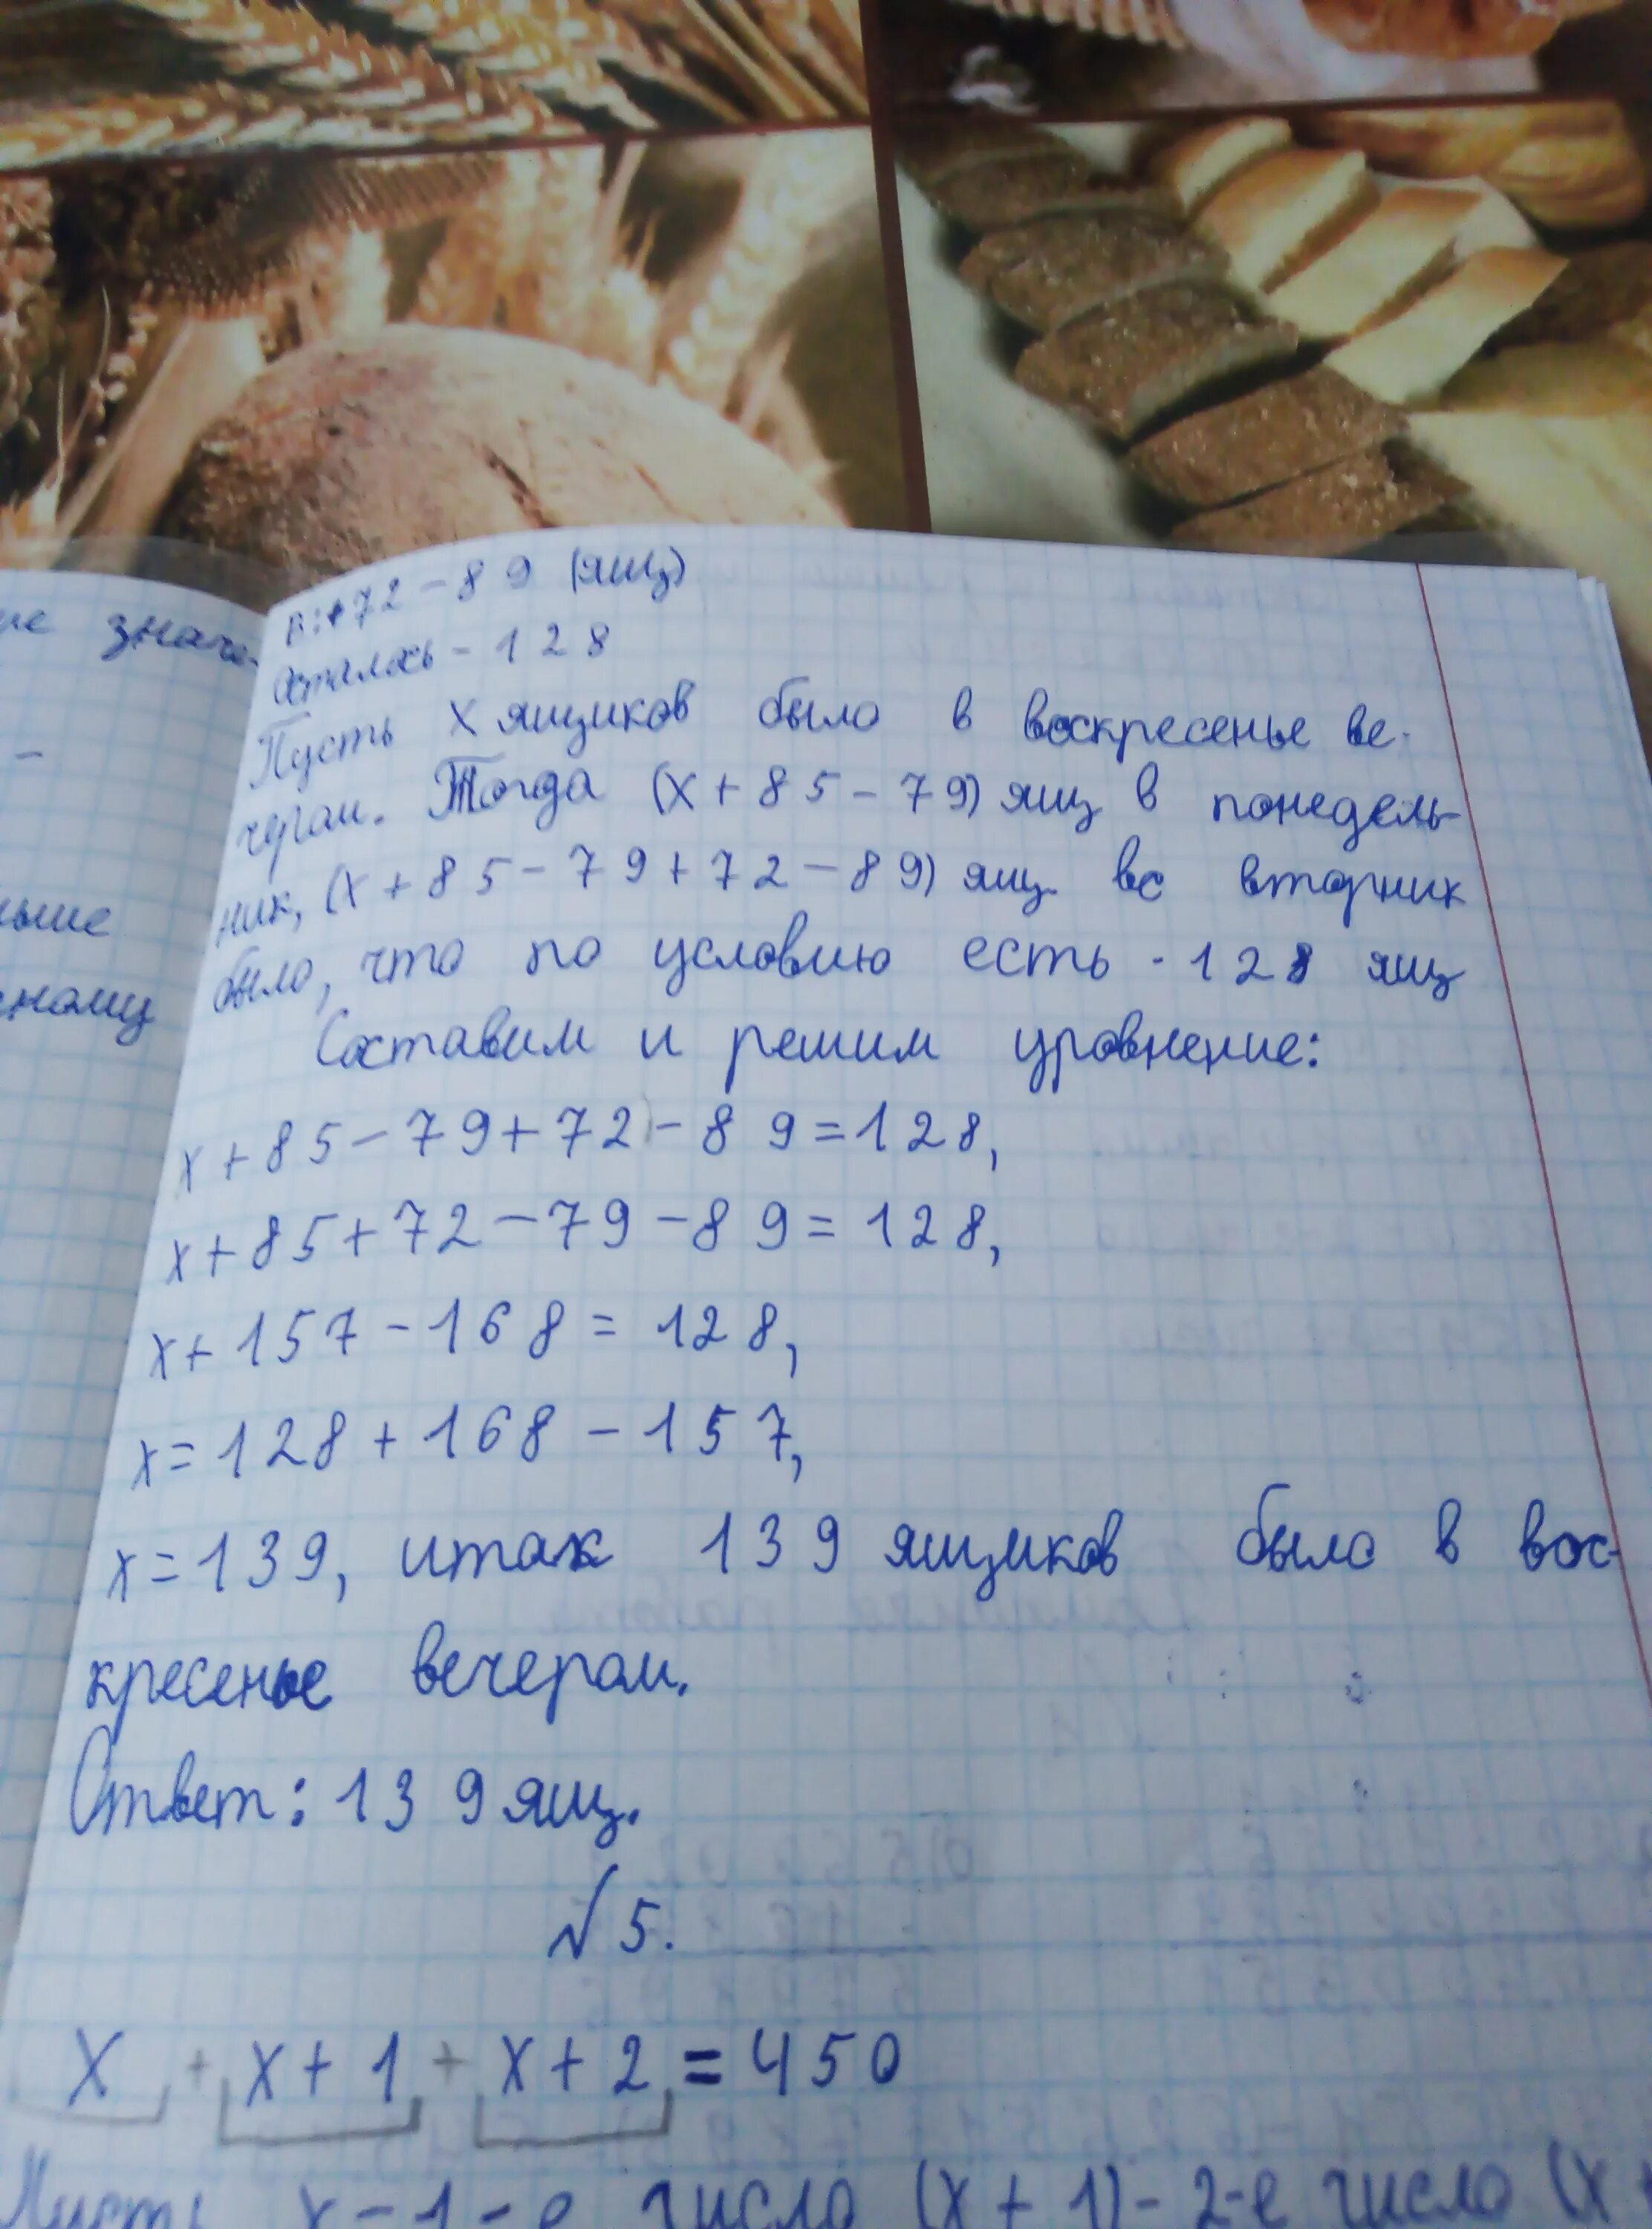 ие значе-
В: +72-89 (ящ)
Осталось - 128
Пусть х ящиков было в воскресенье ве-
чером. Тогда (х+85-79) ящ в понедель-
ник, (х+85-79+72-89) ящ. во вторник
ьше
было, что по условию есть - 128 ящ
ному
Составим и решим уровнение:
х+85-79+72-89=128,
х+85+72-79-89=128,
х+157-168=128,
х=128+168-157,
х=139, итак 139 ящиков было в вос-
кресенье вечером.
Ответ: 139 ящ.
№5.
х + х+1 + х+2 = 450
Пусть х-1-е число (х+1)-2-е число (х+